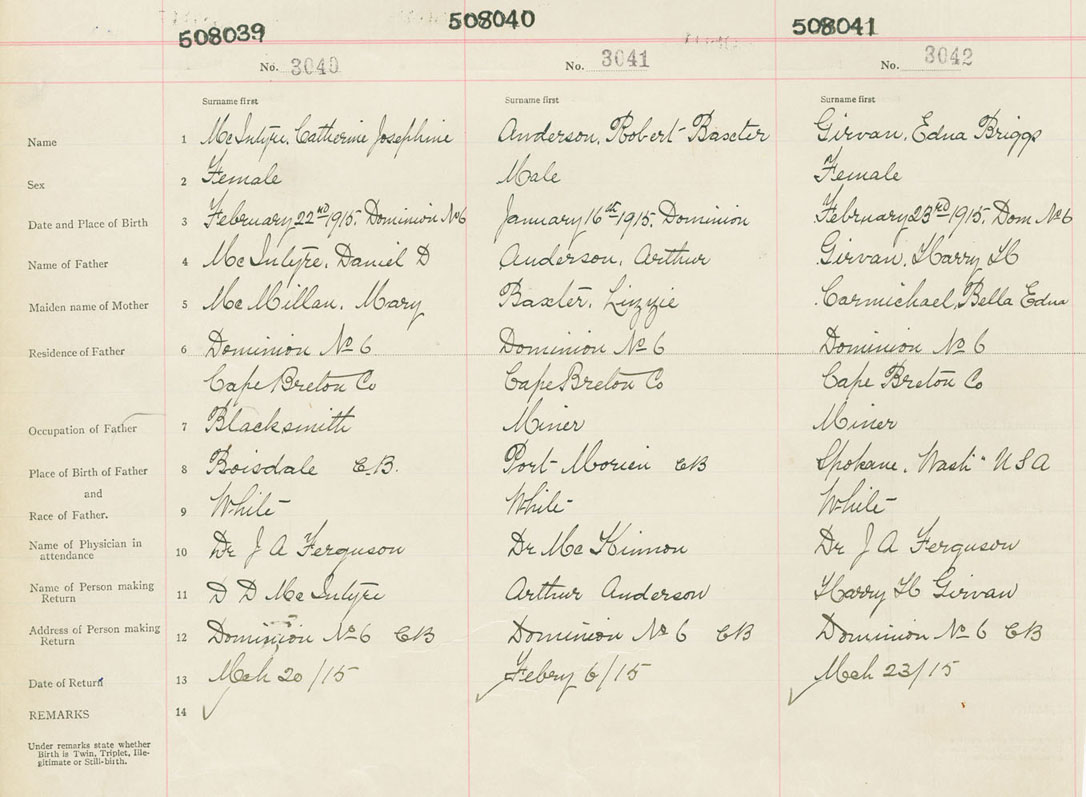 508039 508040 508041
No. 3040 No. 3041 No. 3042
Surname first Surname first Surname first
Name 1 McIntyre, Catherine Josephine Anderson, Robert Baxter Girvan, Edna Briggs
Sex 2 Female Male Female
Date and Place of Birth 3 February 22nd 1915, Dominion No 6 January 16th 1915, Dominion February 23rd 1915, Dom No 6
Name of Father 4 McIntyre, Daniel D Anderson, Arthur Girvan, Harry H
Maiden name of Mother 5 McMillan, Mary Baxter, Lizzie Carmichael, Bella Edna
Residence of Father 6 Dominion No 6 Dominion No 6 Dominion No 6
Cape Breton Co Cape Breton Co Cape Breton Co
Occupation of Father 7 Blacksmith Miner Miner
Place of Birth of Father 8 Boisdale C.B. Port Morien CB Spokane, Wash USA
and
Race of Father. 9 White White White
Name of Physician in
attendance 10 Dr J A Ferguson Dr McKinnon Dr J A Ferguson
Name of Person making
Return 11 D D McIntyre Arthur Anderson Harry H Girvan
Address of Person making
Return 12 Dominion No 6 CB Dominion No 6 CB Dominion No 6 CB
Date of Return 13 Mch 20/15 Febry 6/15 Mch 23/15
REMARKS 14
Under remarks state whether
Birth is Twin, Triplet, Ille-
gitimate or Still-birth.